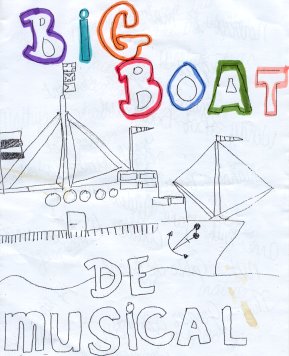 BiG
BOAT
DE
MUSiCAL